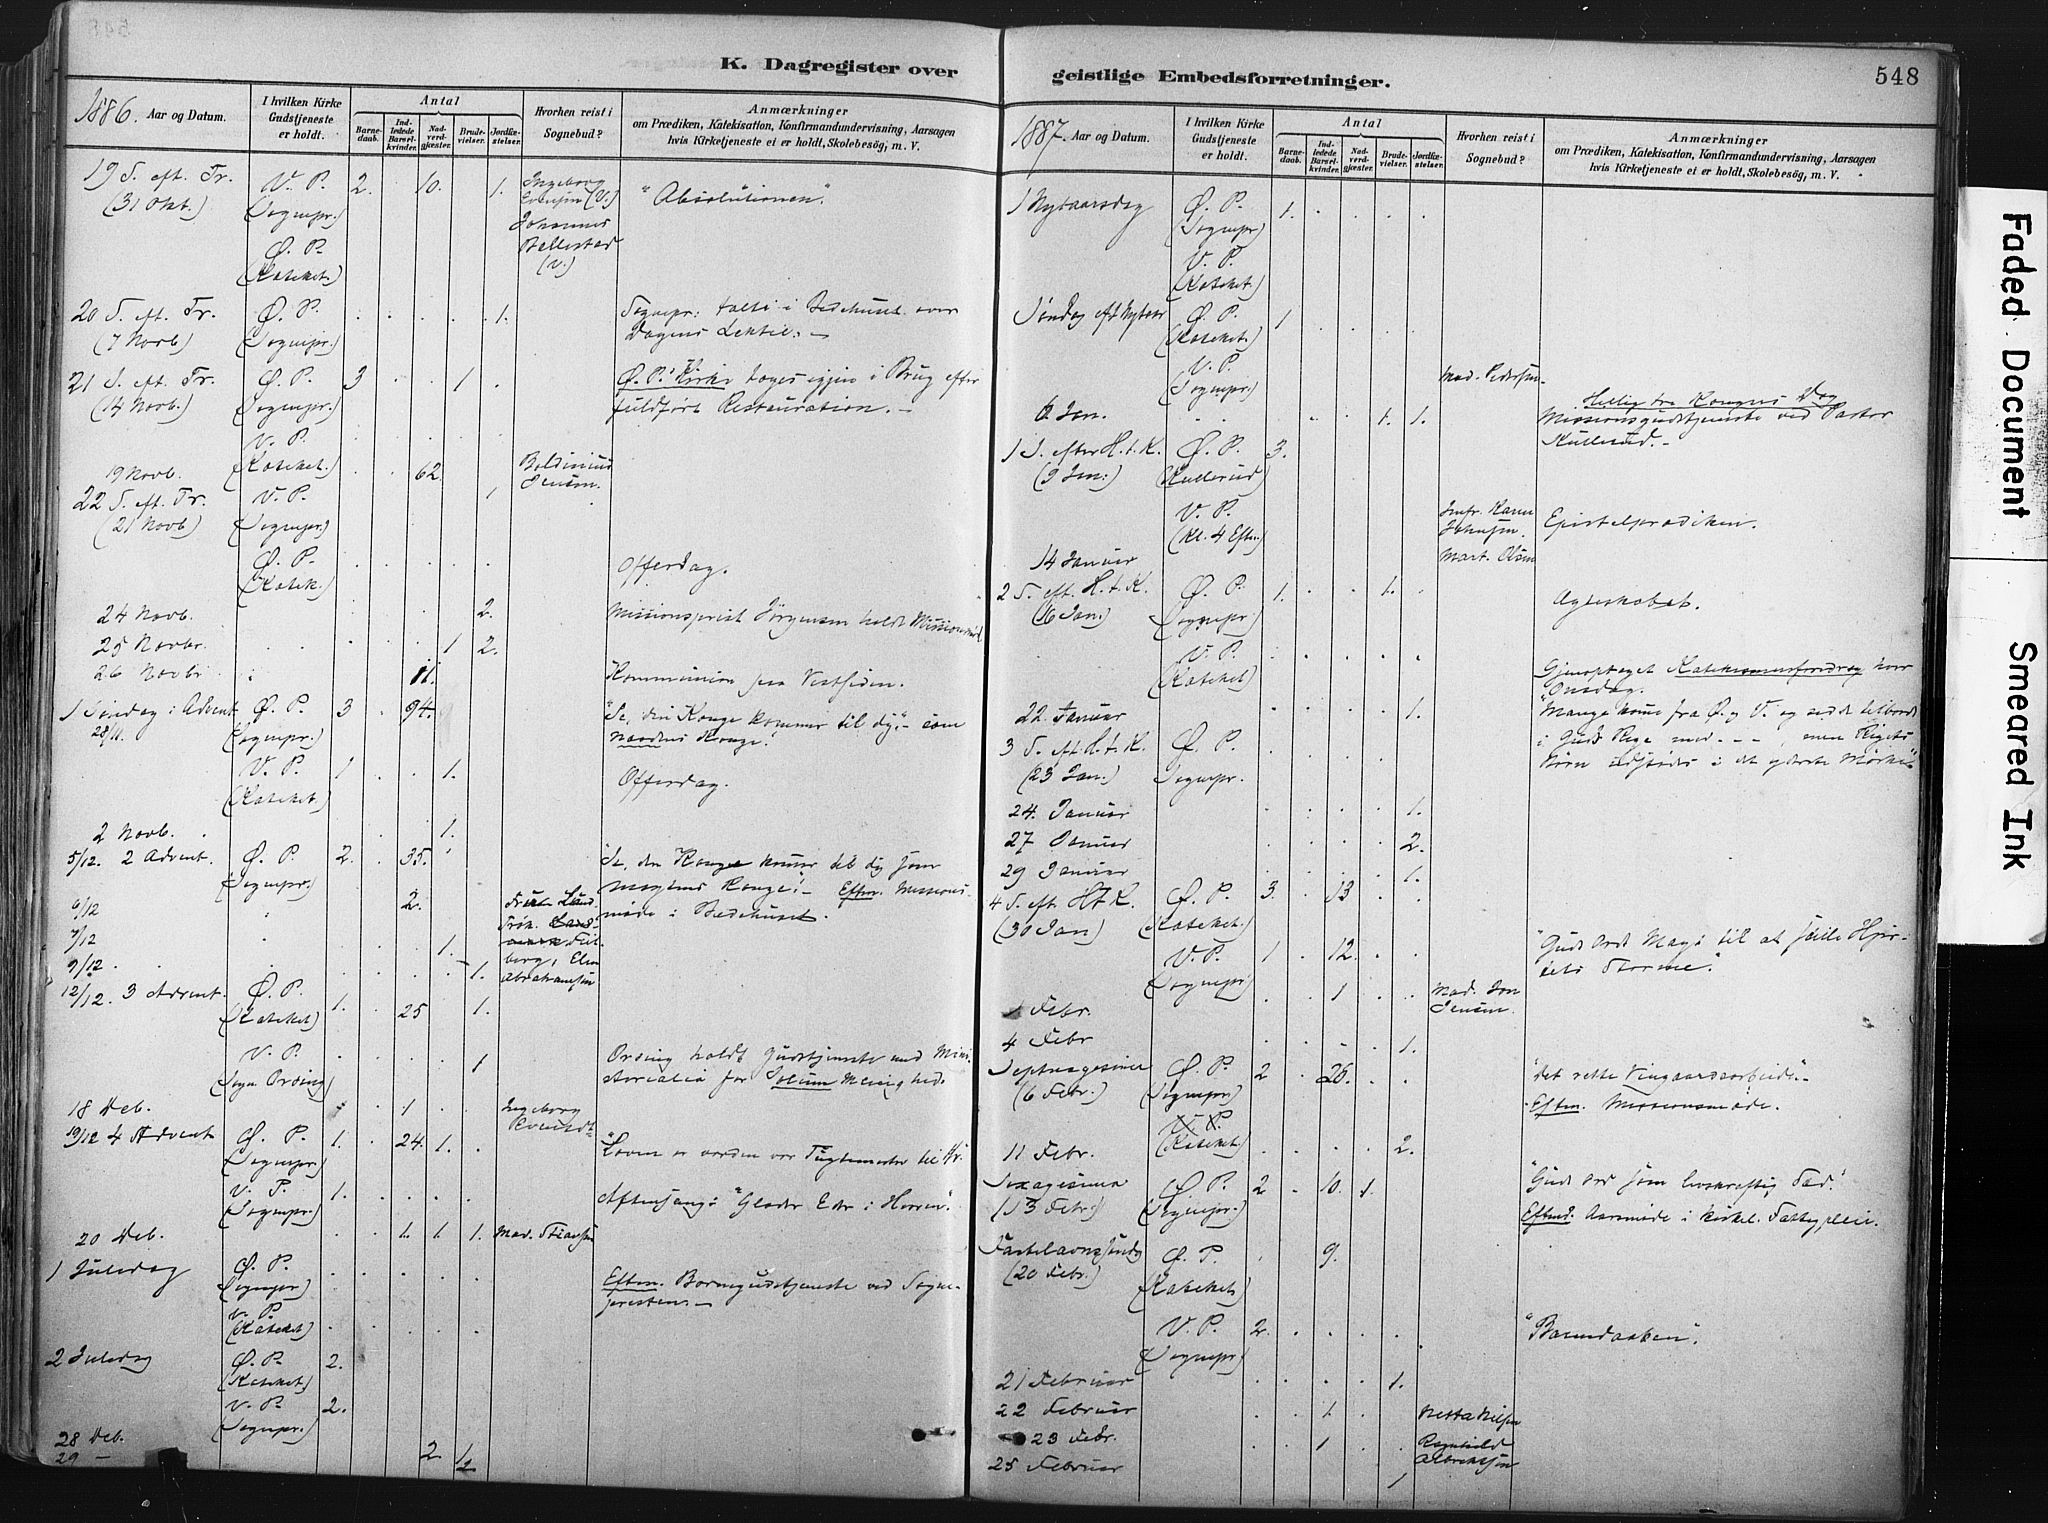 K. Dagregister over
1886. Aar og Datum.
I hvilken Kirke Gudstjeneste er holdt.
Antal
Barne-daab.
Ind-ledede Barsel-kvinder.
Nad-verd-gjæster.
Brude-vielser.
Jordfæ-stelser.
Hvorhen reist i Sognebud?
Anmærkninger
om Prædiken, Katekisation, Konfirmandundervisning, Aarsagen
hvis Kirketjeneste ei er holdt, Skolebesøg, m. V.
19 S. eft. Tr. V. P. 2. . 10. . 1. Ingeborg "Absolutionen".
(31 Okt.) (Sognepr.) (V.)
Johannes
Ø. P. Bollestad
(Kateket.) (V.)
20 S. eft. Tr. Ø. P. . . . . 1. Sognepr. talte i Bedehuset over
(7 Novb) (Sognepr.) Dagens Lektie. –
21 S. eft. Tr. Ø. P. 3 . . 1 . Ø. P. Kirke toges igjen i Brug efter
(14 Novb.) (Sognepr.) fuldført Restauration. –
V. P.
(Kateket.)
19 Novb. . . 62. Jensen.
22 S. eft. Tr. V. P. 1
(21 Novb) (Sognepr.)
Ø. P. Offerdag.
(Katek.)
24 Novb. 2. Missionsprest Jörgensen holdt Missions
25 Novbr. . . . 1 2.
26 Novbr. 11. Kommunion paa Vestsiden.
1 Søndag i Advent Ø. P. 3 . 94. "Se, din Konge kommer til dig" – som
28/11. (Sognepr.) Naadens Konge."
V. P. 1 . . 1.
(Kateket) Offerdag.
2 Novb. . 1.
5/12. 2 Advent. Ø. P. 2. . 35. "Se, din Konge kommer til dig som
(Sognepr.) Magtens Konge". – Eftm. Missions-
6/12 2. møde i Bedehuset.
7/12 1.
9/12 . . 1. Abrahamsen
12/12. 3 Advent. Ø. P. 1. . 25 . 1.
(Kateket)
V. P. . . . . 1 Orsing holdt Gudstjeneste med Mini-
(Sogn Orsing) sterialia for Solum Menighed.
18 Deb. . . 1 Ingeborg
19/12 4 Advent Ø. P. 1. . 24. 1. . "Loven er vorden vor Tugtemester til Kr.
(Sognepr.)
V. P. 1. Aftensang: "Glæder Eder i Herren".
(Sognepr.)
20 Deb. 1. 1. 1. Mad.
1 Juledag Ø. P.
(Sognepr) Eftm. Børnegudstjeneste ved Sogne-
V. P. presten. –
(Kateket)
2 Juledag Ø. P. 2.
(Kateket)
V. P. 2.
(Sognepr.)
28 Deb. 2. 1
29 – 2
geistlige Embedsforretninger.
548
1887. Aar og Datum.
I hvilken Kirke Gudstjeneste er holdt.
Antal
Barne-daab.
Ind-ledede Barsel-kvinder.
Nad-verd-gjæster.
Brude-vielser.
Jordfæ-stelser.
Hvorhen reist i Sognebud?
Anmærkninger
om Prædiken, Katekisation, Konfirmandundervisning, Aarsagen
hvis Kirketjeneste ei er holdt, Skolebesøg, m. V.
1 Nytaarsdag Ø. P. 1. . . . .
(Sognepr)
V. P.
(Kateket)
Søndag eft Nytaar Ø. P. 1
(Kateket.)
V. P. Mad. Pedersen.
(Sognepr.) Hellig tre Kongers Dag
6 Jan. . . . 1. 1. Missionsgudstjeneste ved Pastor
Kullerud. –
1 S. efter H. t. K. Ø. P. 3.
(9 Jan:) (Kullerud)
V. P. Jmfr. Karen
(Kl. 4 Eftm.) Johnsen. Epistelprædiken.
14 Januar Mart. Olsen
2 S. eft. H. t. K. Ø. P. 1. . . 1. Ægteskabet.
(16 Jan.) (Sognepr)
V. P. Gjenoptaget Katekismusforedrag hver
(Kateket) Onsdag.
22. Januar 1. "Mange komme fra Ø. og V. og sidde tilbords
3 S. eft. H. t. K. Ø. P. i Guds Rige med – – –, men Rigets
(23 Jan.) Sognepr. Børn udstødes i det yderste Mørke".
24. Januar 1.
27 Januar 2.
29 Januar 1.
4 S. eft H t K. Ø. P. 3. . 13
(30 Jan) (Kateket.)
V. P. 1 . 12. "Guds Ords Magt til at stille Hjer-
(Sognepr) tets Storme".
1 Febr. 1 Mad. Jensen.
4 Febr 1.
Septuagesima Ø. P. 2 . 26. "Det rette Vingaardsarbeide". –
(6 Febr.) (Sognepr) Eftm. Missionsmøde.
V. P.
(Kateket.)
11 Febr. 2.
Sexagesima Ø. P. 2 . 10. 1. "Guds Ord som livskraftig Sæd."
(13 Febr.) (Sognepr.) Eftmd. Aarsmøde i kirkel. Fattigpleie.
Fastelavnssøndag Ø. P. . 9.
(20 Febr.) (Kateket)
V. P. 2. "Barnedaaben".
(Sognepr.)
21 Februar 1.
22 Februar 1 Netta Nilsen
23 Febr. 1 Ragnhild
25 Februar 1 Albrektsen
Faded Document
Smeared Ink